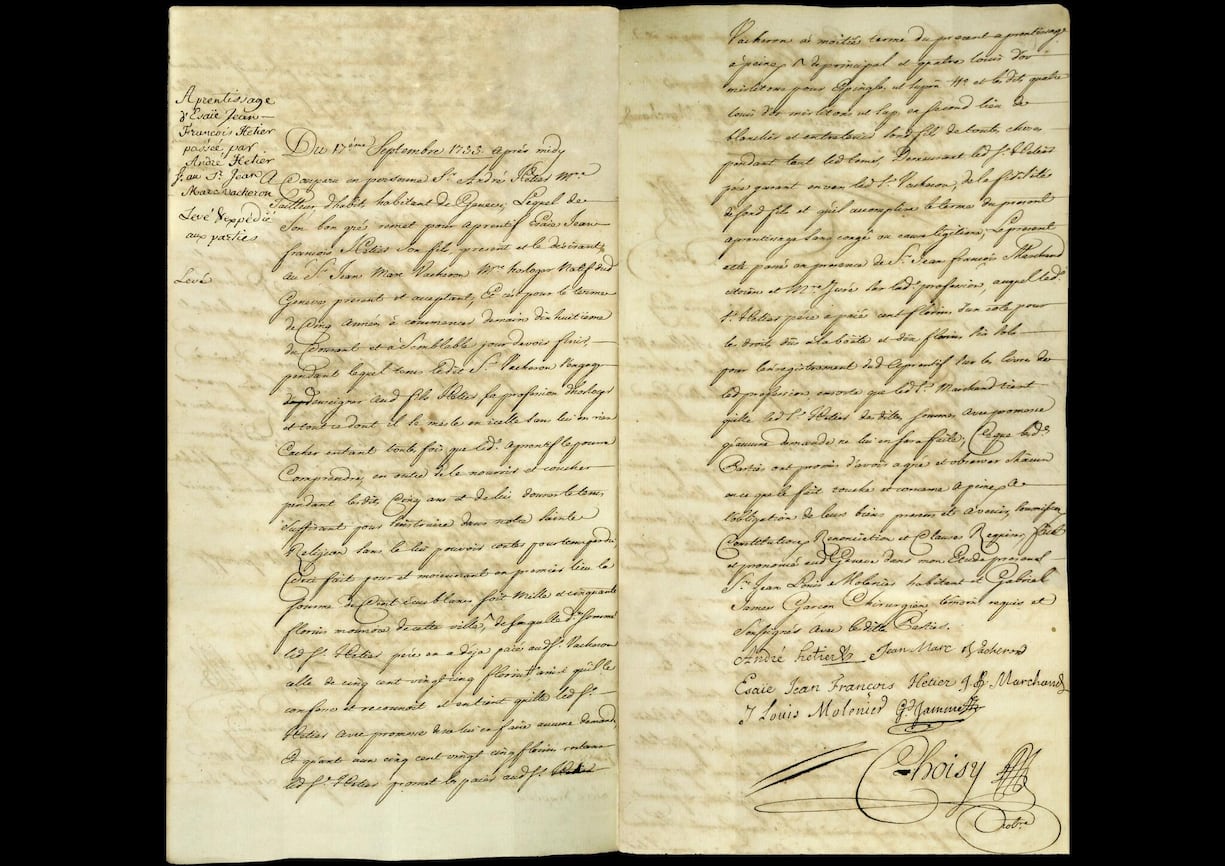 Aprentissage
d'Esaïe Jean
François Hetier
passée par
André Hetier
au Sr. Jean
Marc Vacheron
Levé & expédié
aux parties
Levé
Du 17ème Septembre 1755 après midy
A Comparu en personne Sr. André Hetier Mre.
Taillier d'habits habitant de Geneve, Lequel de
Son bon gré remet pour aprentif Esaïe Jean
françois Hetier Son fils present et le désirant,
au Sr. Jean Marc Vacheron Mre. horloger Natif dud.
Geneve present et acceptant, Et c'est pour le terme
de Cinq Années à commencer demain dix huitieme
du Courant et à Semblable jour devoir finir,
pendant lequel tems ledit Sr. Vacheron s'engage
d'enseigner aud. fils Hetier sa profession d'horloger
et tout ce dont il se mesle en icelle sans lui en rien
Cacher entant toute fois que led. aprentif le pourra
Comprendre, en outre de le nourrir et coucher
pendant lesdits Cinq ans et de lui donner le tems
Suffisant pour s'instruire dans notre Sainte
Religion sans le lui pouvoir
Ceci fait pour et moienant en premier lieu la
somme de Cent Ecus blancs soit Mille et cinquante
florins monnoie de cette ville, de laquelle de. somme
led. Sr. Hetier pere en a déja paié aud. Sr. Vacheron
celle de cinq cent vingt cinq florins ainsi qu'il le
confesse et reconnoit et en tient quitte led. Sr.
Hetier avec promesse de ne lui en faire aucune demande,
Et quant aux cinq cent vingt cinq florins restans
led. Sr. Hetier promet les paier aud. Sr.
Vacheron à moitié terme du present aprentissage
à peine de principal et quatre louis d'or
mirlitons pour Epingles et lesdits quatre
louis d'or mirlitons en second lieu de
blanchir et entretenir son d. fils de toutes choses
pendant tout led. tems, Demeurant led. Sr. Hetier
pere garant envers led. Sr. Vacheron, de la fidelité
de son d. fils et qu'il accomplira le terme du present
aprentissage sans congé ou cause légitime; Le present
acte passé en presence de Sr. Jean françois Marchand
citoien et Mre. Juré sur lad. profession, auquel led.
Sr. Hetier père a paié cent florins d'un coté pour
les droits dûs à la boëte et dix florins six sols
pour l'enregistrement dud. aprentif sur le livre de
lad. profession ensorte que led. Sr. Marchand tient
quitte led. Sr. Hetier desdites sommes avec promesse
qu'aucune demande ne lui en sera faite; Ce que lesd.
Parties ont promis d'avoir agréé et observer chacun
en ce que le fait touche et concerne à peine &
l'obligation de leurs biens presens et avenir,
Constitution, Renonciation et Clauses Requises, fait
et prononcé aud. Geneve dans mon Etude presens
Sr. Jean Louis Molenier habitant et Gabriel
James Garçon Chirurgien témoins requis et
soussignés avec lesdites Parties.
André hetier Jean Marc Vacheron
Esaïe Jean François Hetier J. F. Marchand
J Louis Molenier Gel Jammes
Choisy
Notre